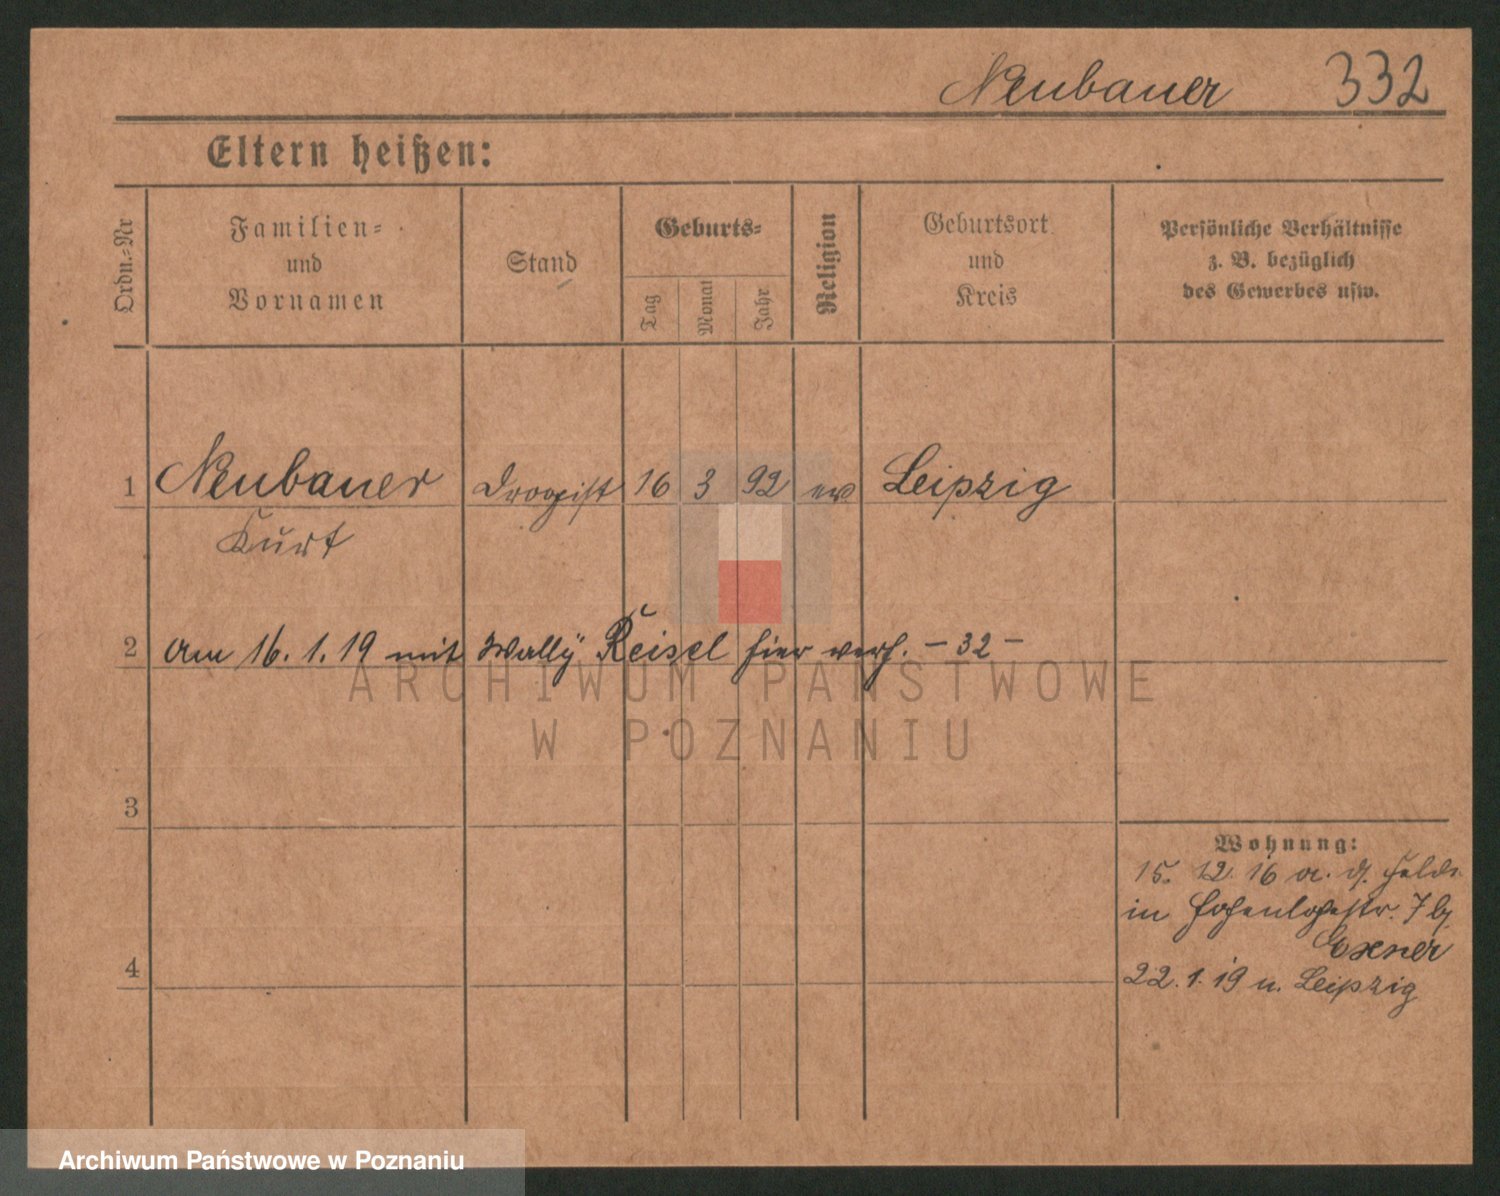 Neubauer 332
Eltern heißen:
Ordn.-Nr
Familien-
und
Vornamen
Stand
Geburts-
Tag
Monat
Jahr
Religion
Geburtsort
und
Kreis
Persönliche Verhältnisse
z. B. bezüglich
des Gewerbes usw.
1 Neubauer Drogist 16 3 92 ev Leipzig
Kurt
2 am 16.1.19 mit Wally Reisel hier verh. – 32 –
3
4
Wohnung:
15. 12. 16 a. d. Felde
in Hohenlohestr. 7 bj
Exner
22.1.19 n. Leipzig
ARCHIWUM PAŃSTWOWE
W POZNANIU
Archiwum Państwowe w Poznaniu